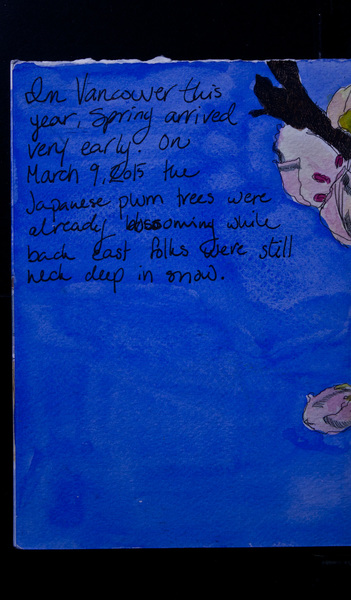 In Vancouver this
year, Spring arrived
very early. On
March 9, 2015 the
Japanese plum trees were
already blossoming while
back east folks were still
neck deep in snow.